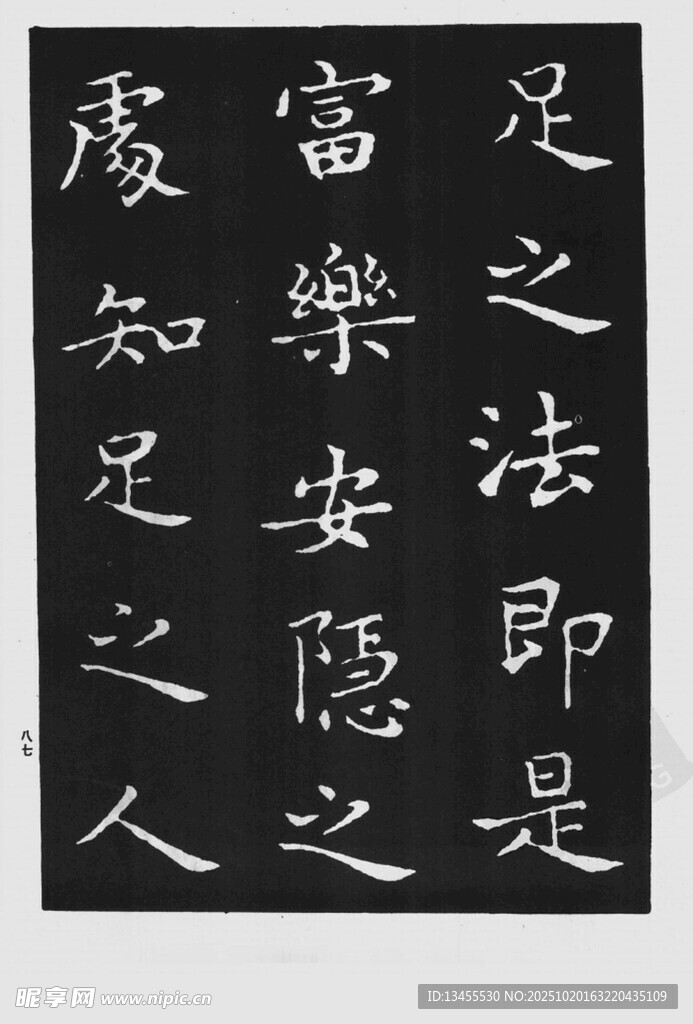 足之法即是
富樂安隱之
處知足之人
八七
昵享网 www.nipic.cn
ID:13455530 NO:20251020163220435109